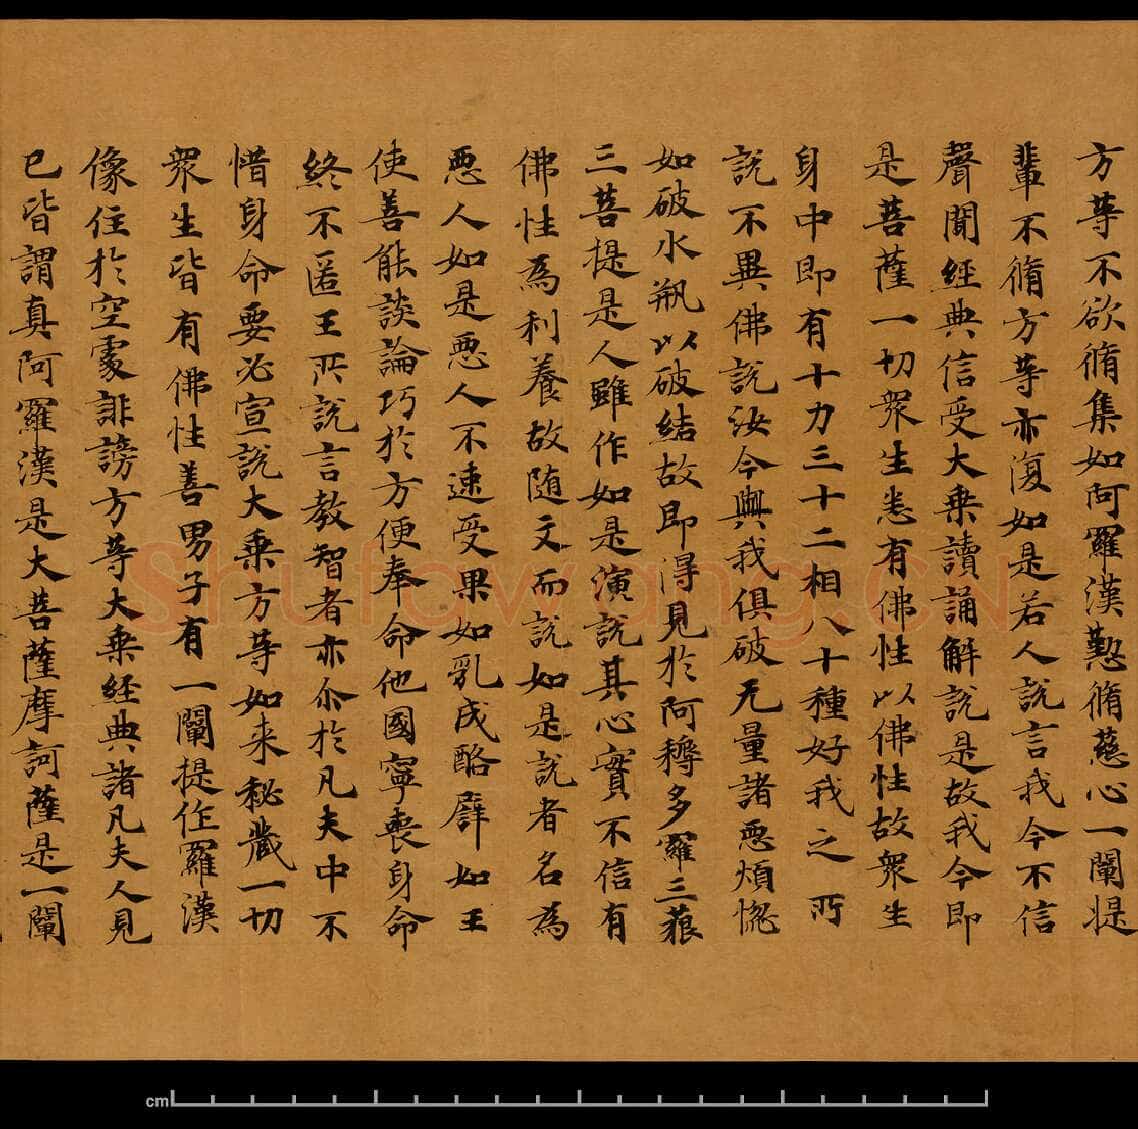 方等不欲脩集如阿羅漢懃脩慈心一闡提
輩不脩方等亦復如是若人說言我今不信
聲聞經典信受大乗讀誦解說是故我今即
是菩薩一切衆生悉有佛性以佛性故衆生
身中即有十力三十二相八十種好我之所
說不異佛說汝今與我俱破无量諸惡煩惱
如破水瓶以破結故即得見於阿耨多羅三藐
三菩提是人雖作如是演說其心實不信有
佛性為利養故随文而說如是說者名為
惡人如是惡人不速受果如乳成酪譬如王
使善能談論巧於方便奉命他國寧喪身命
終不匿王所說言教智者亦尒於凡夫中不
惜身命要必宣說大乗方等如来秘藏一切
衆生皆有佛性善男子有一闡提作羅漢
像住於空處誹謗方等大乗經典諸凡夫人見
已皆謂真阿羅漢是大菩薩摩訶薩是一闡
Shufawang.cn
cm